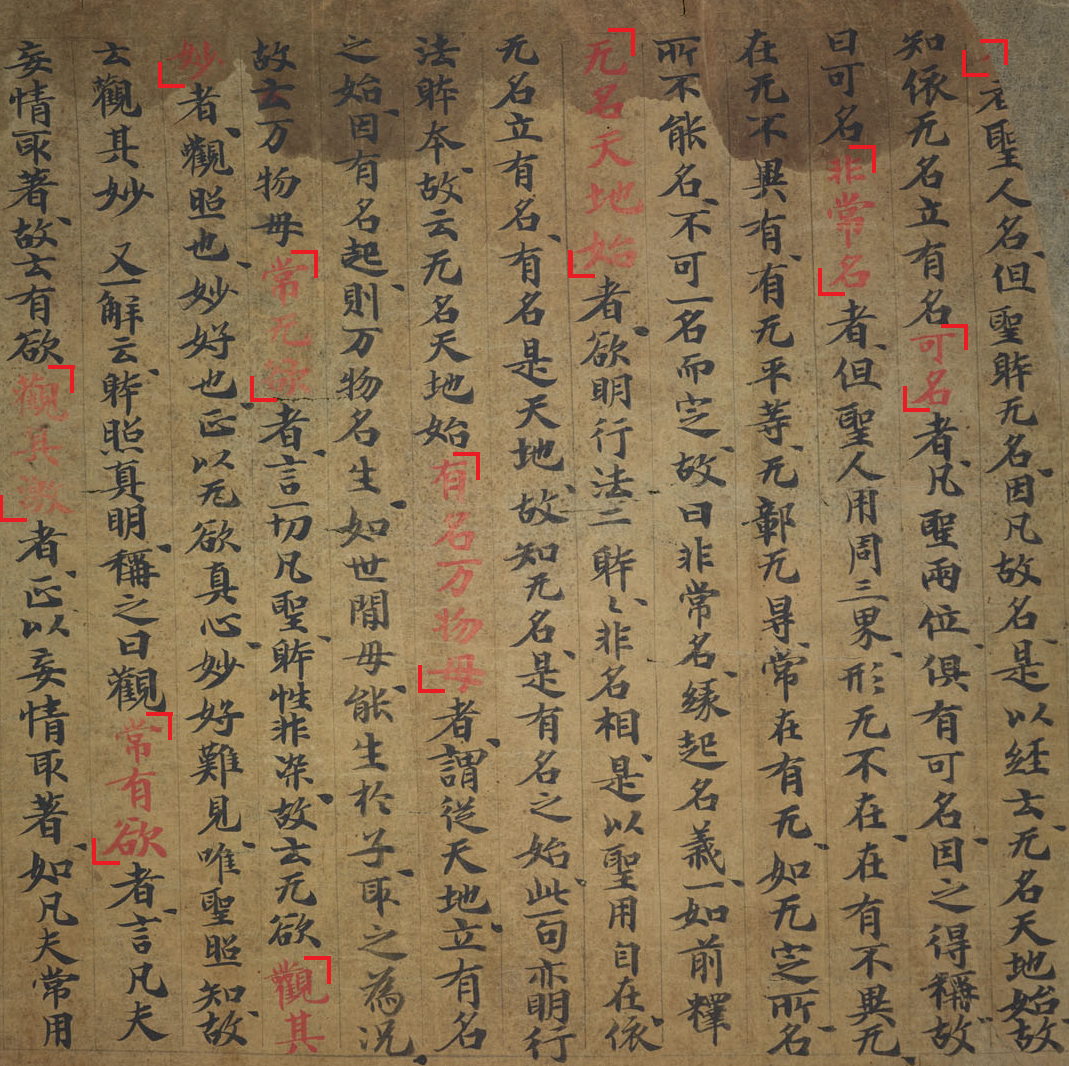 名无聖人名但聖躰无名因凡故名是以経云无名天地始故
知依无名立有名可名者凡聖兩位俱有可名因之得稱故
曰可名非常名者但聖人用周三界形无不在在有不異无
在无不異有有无平等无鄣无㝵常在有无如无㝎所名
所不能名不可一名而㝎故曰非常名縁起名義一如前釋
无名天地始者欲明行法二躰〻非名相是以聖用自在依
无名立有名有名是天地故知无名是有名之始此一句亦明行
法躰本故云无名天地始有名万物母者謂從天地立有名
之始因有名起則万物名生如世間母能生於子取之為況
故云万物母常无欲者言一切凡聖躰性非染故云无欲觀其
妙者觀照也妙好也正以无欲真心妙好難見唯聖照知故
云觀其妙 又一解云躰照真明稱之曰觀常有欲者言凡夫
妄情取著故云有欲觀其徼者正以妄情取著如凡夫常用